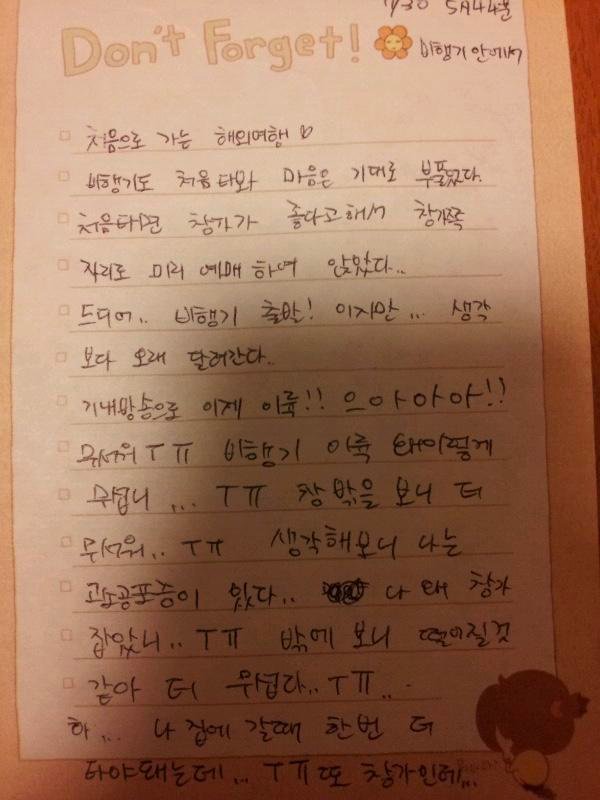 7/30 5시44분
Don't Forget!
비행기 안에서
처음으로 가는 해외여행♡
비행기도 처음 타봐 마음은 기대로 부풀었다.
처음타면 창가가 좋다고해서 창가쪽
자리로 미리 예매하여 앉았다..
드디어.. 비행기 출발! 이지만... 생각
보다 오래 달려간다..
기내방송으로 이제 이륙!! 으아아아!!
무서워ㅜㅠ 비행기 이륙 왜이렇게
무섭니... ㅜㅠ 창 밖을 보니 더
무서워.. ㅜㅠ 생각해보니 나는
고소공포증이 있다.. 나 왜 창가
잡았니.. ㅜㅠ 밖에 보니 떨어질것
같아 더 무섭다..ㅜㅠ...
하... 나 집에 갈때 한번 더
타야돼는데... ㅜㅠ또 창가인데...